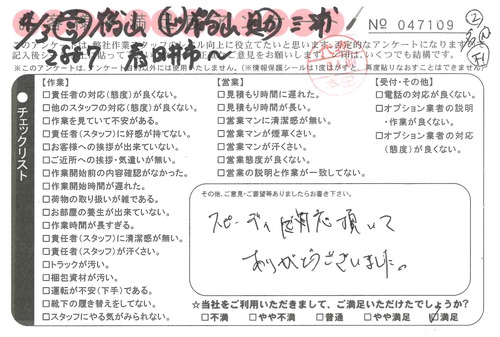 No 047109
このアンケートは、弊社作業スタッフのレベル向上に役立てたいと思います。否定的なアンケートになりますので
※このアンケートは、アンケート目的以外には使用いたしません。(※情報保護シールは1度はがすと、再度貼りなおすことはできません。)
チェックリスト
【作業】
□責任者の対応(態度)が良くない。
□他のスタッフの対応(態度)が良くない。
□作業を見ていて不安がある。
□責任者(スタッフ)に好感が持てない。
□お客様への挨拶が出来ていない。
□ご近所への挨拶・気遣いが無い。
□作業開始前の内容確認がなかった。
□作業開始時間が遅れた。
□荷物の取り扱いが雑である。
□お部屋の養生が出来ていない。
□作業時間が長すぎる。
□責任者(スタッフ)に清潔感が無い。
□責任者(スタッフ)が汗くさい。
□トラックが汚い。
□梱包資材が汚い。
□運転が不安(下手)である。
□靴下の履き替えをしてない。
□スタッフにやる気がみられない。
【営業】
□見積もり時間に遅れた。
□見積もり時間が長い。
□営業マンに清潔感が無い。
□営業マンが煙草くさい。
□営業マンが汗くさい。
□営業態度が良くない。
□営業の説明と作業が一致してない。
【受付・その他】
□電話の対応が良くない。
□オプション業者の説明・作業が良くない。
□オプション業者の対応(態度)が良くない。
その他、ご意見・ご要望等ありましたらお書き下さい。
スピーディに対応頂いて
ありがとうございました。
☆当社をご利用いただきまして、ご満足いただけたでしょうか?
□不満 □やや不満 □普通 □やや満足 ☑満足